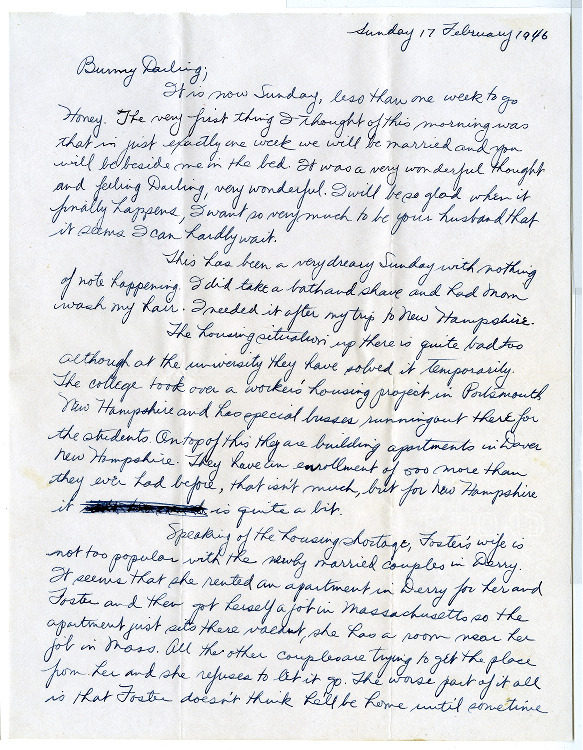 Sunday 17 February 1946
Bunny Darling;
It is now Sunday, less than one week to go
Honey. The very first thing I thought of this morning was
that in just exactly one week we will be married and you
will be beside me in the bed. It was a very wonderful thought
and feeling Darling, very wonderful. I will be so glad when it
finally happens, I want so very much to be your husband that
it seems I can hardly wait.
This has been a very dreary Sunday with nothing
of note happening. I did take a bath and shave and had Mom
wash my hair. I needed it after my trip to New Hampshire.
The housing situation up there is quite bad too
although at the university they have solved it temporarily.
The college took over a worker's housing project in Portsmouth
New Hampshire and has special busses running out there for
the students. On top of this they are building apartments in Dover
New Hampshire. They have an enrollment of 500 more than
they ever had before, that isn't much, but for New Hampshire
it is quite a bit.
Speaking of the housing shortage, Foster's wife is
not too popular with the newly married couples in Derry.
It seems that she rented an apartment in Derry for her and
Foster and then got herself a job in Massachusetts so the
apartment just sits there vacant, she has a room near her
job in Mass. All the other couples are trying to get the place
from her and she refuses to let it go. The worse part of it all
is that Foster doesn't think he'll be home until sometime